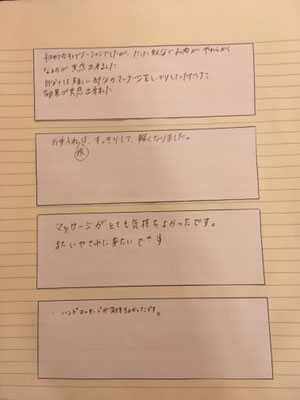 初めてのキャビテーションでしたが、たった数分でお肉がやわらかく
なるのが実感出来ました
自分では難しい部分のマッサージをしっかりしていただけて
効果が実感出来ました
お手入れは、すっきりして、軽くなりました。
後
マッサージがとても気持ちよかったです。
またいやされに来たいです
・ハンドマッサージが気持ちよかったです。